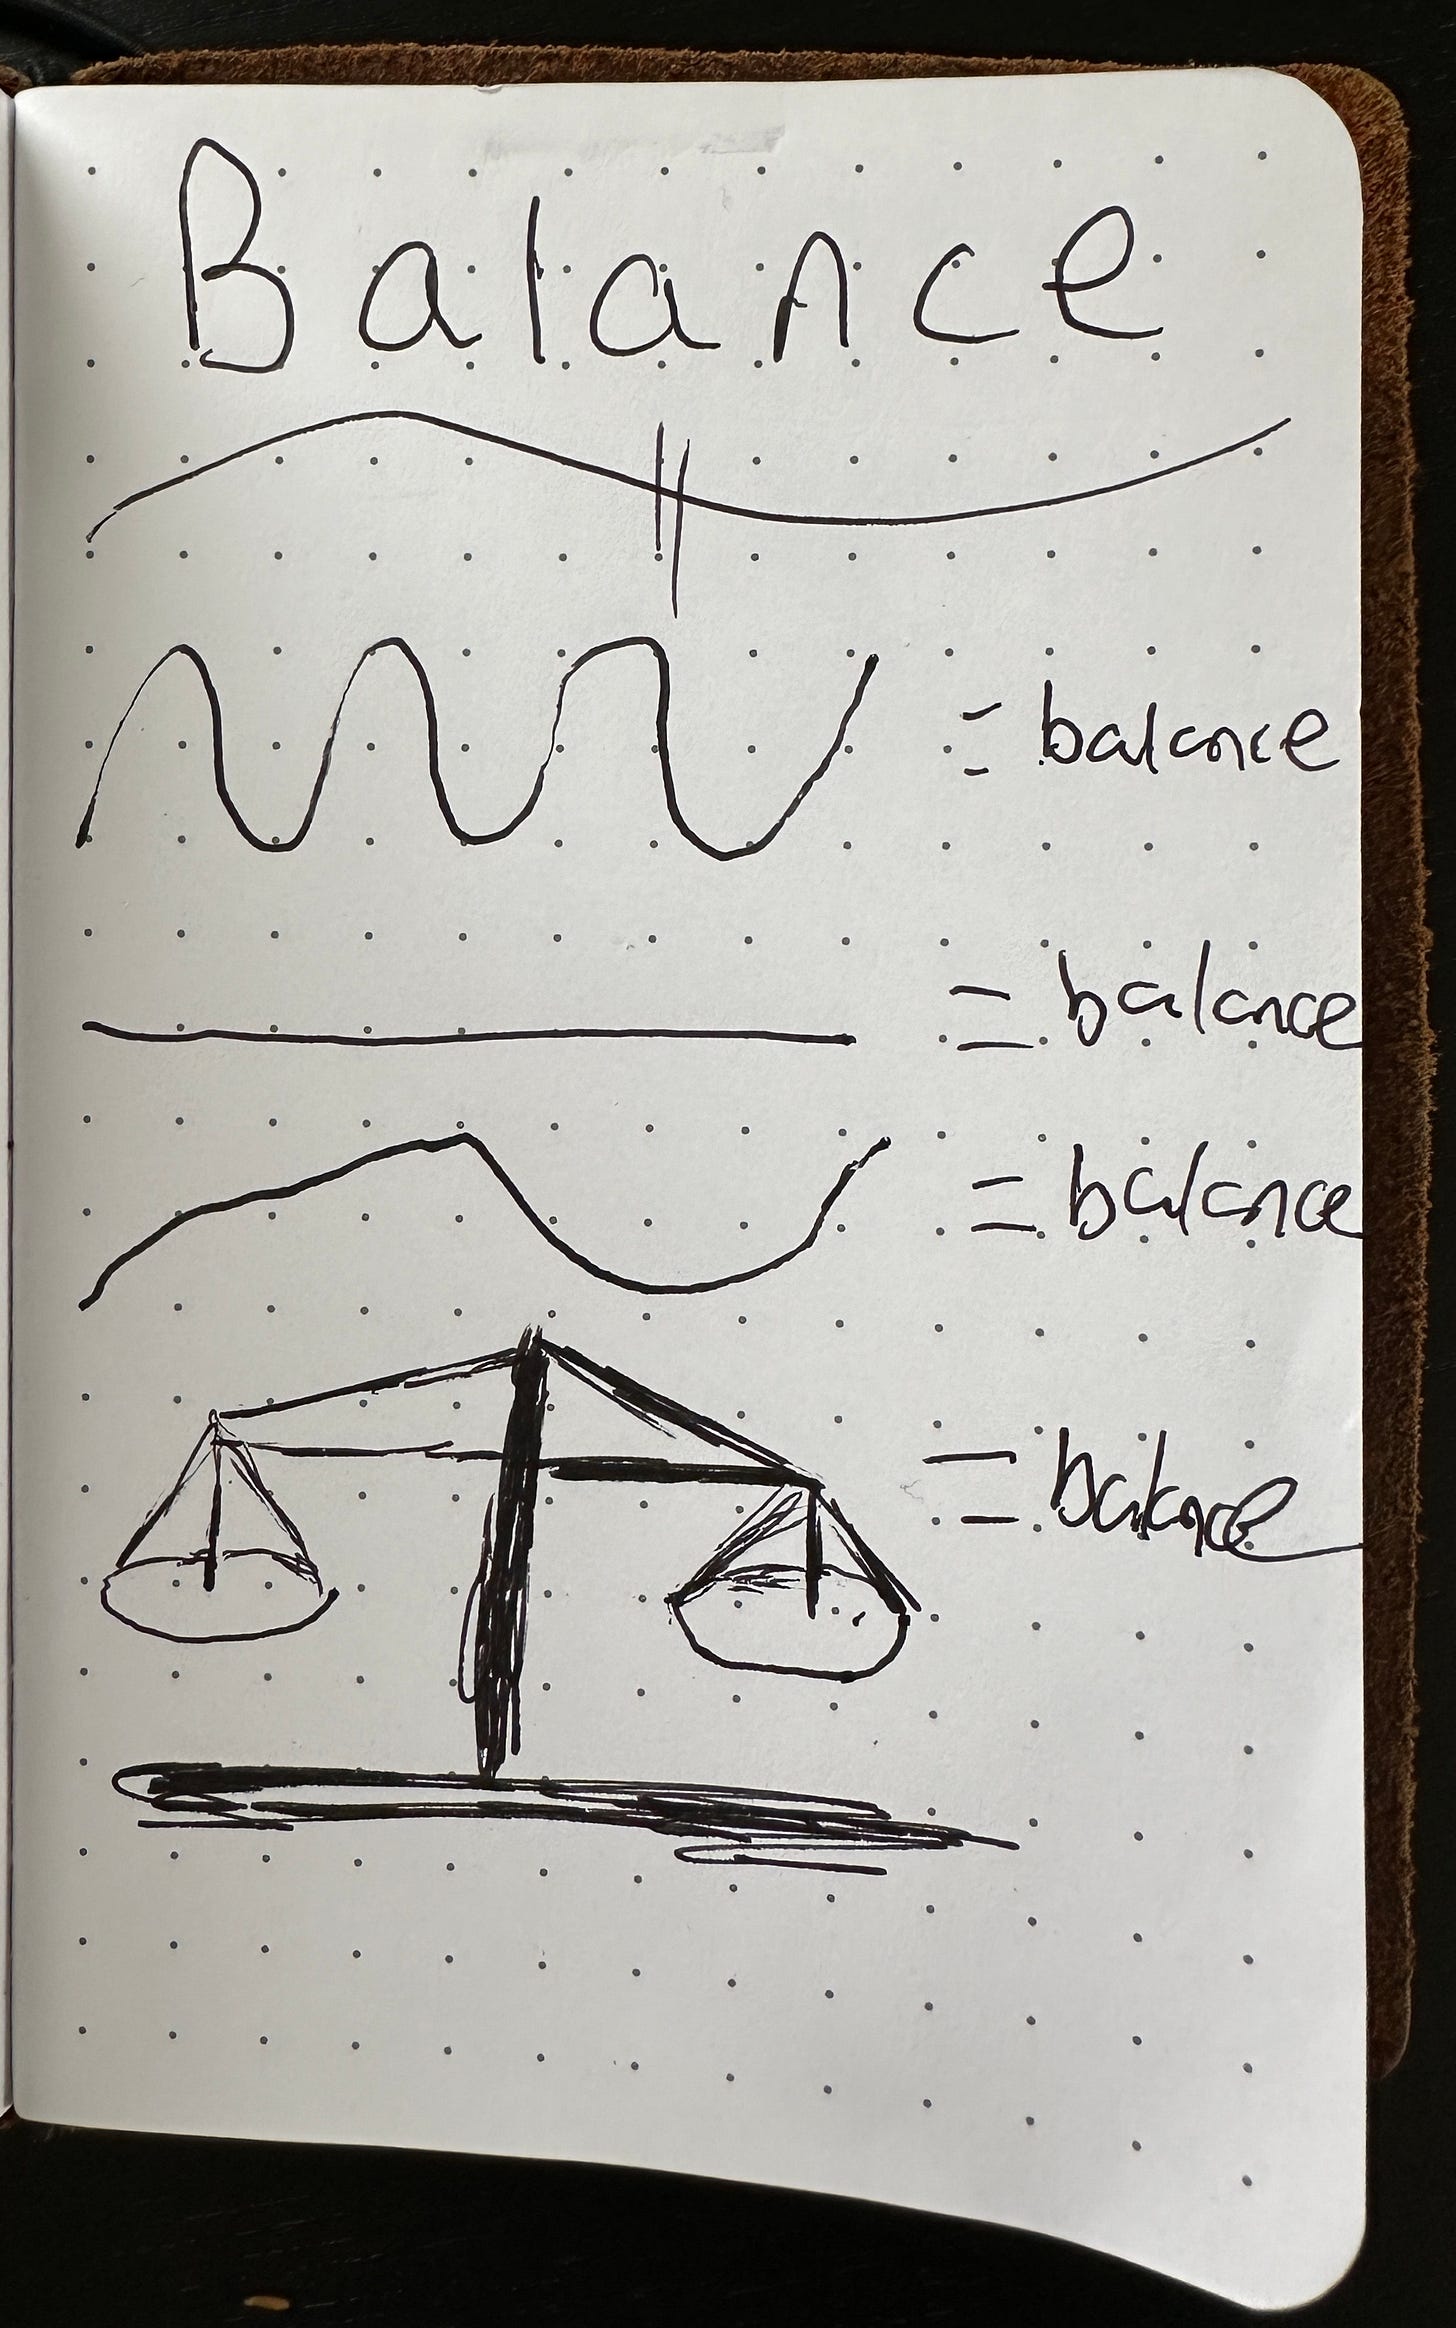 Balance
= balance
= balance
= balance
= balance